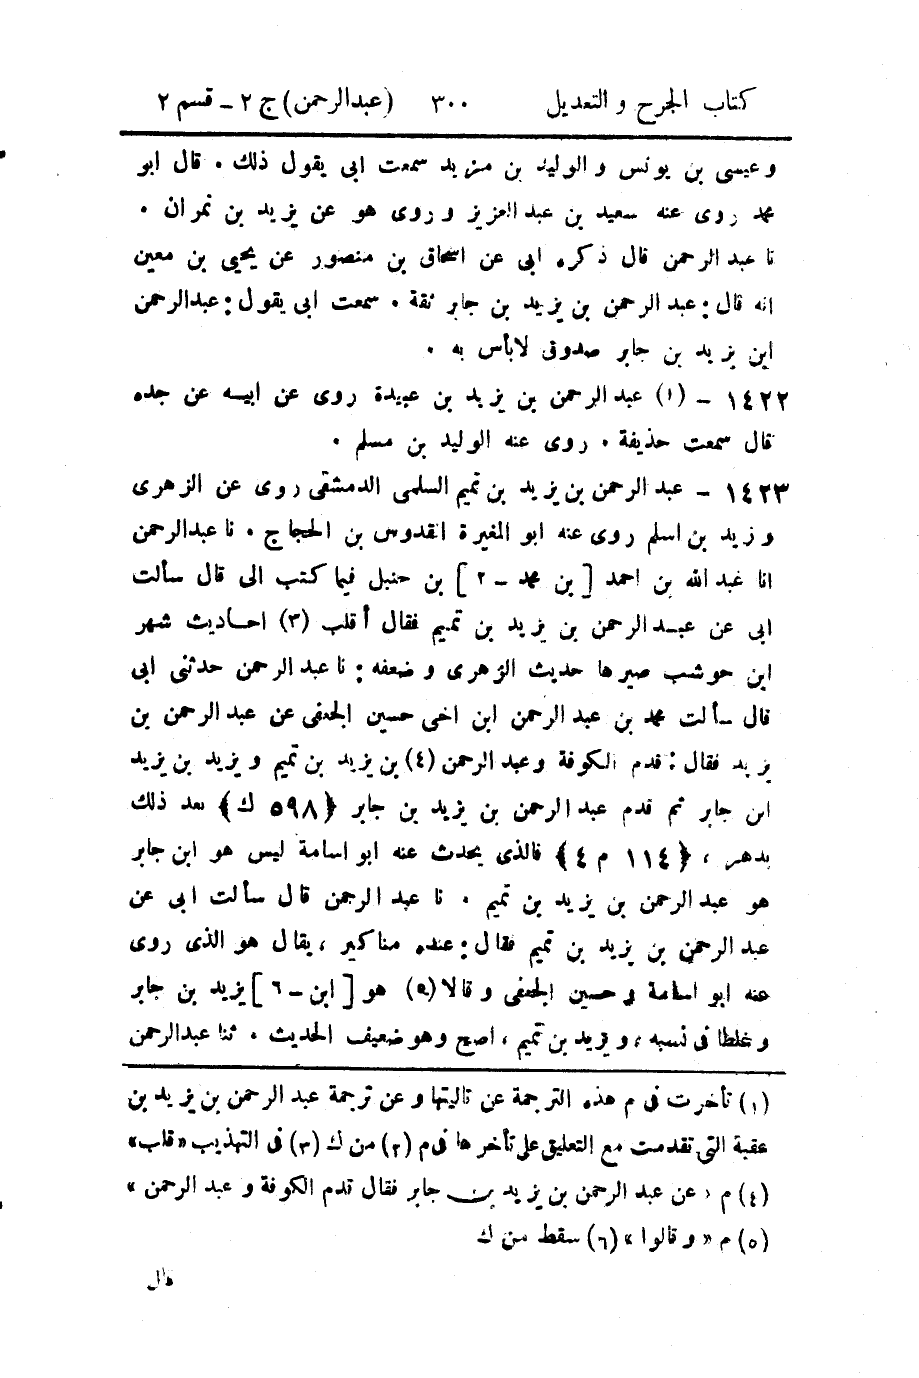 كتاب الجرح و التعديل ٣٠٠ (عبدالرحمن) ج ٢ – قسم ٢
و عيسى بن يونس و الوليد بن مزيد سمعت ابى يقول ذلك . قال ابو
محمد روى عنه سعيد بن عبد العزيز و روى هو عن يزيد بن نمران .
نا عبد الرحمن قال ذكره ابى عن اسحاق بن منصور عن يحيى بن معين
انه قال : عبد الرحمن بن يزيد بن جابر ثقة . سمعت ابى يقول : عبدالرحمن
ابن يزيد بن جابر صدوق لابأس به .
١٤٢٢ – (١) عبد الرحمن بن يزيد بن عبيدة روى عن ابيه عن جده
قال سمعت حذيفة . روى عنه الوليد بن مسلم .
١٤٢٣ – عبد الرحمن بن يزيد بن تميم السلمى الدمشقى روى عن الزهرى
و زيد بن اسلم روى عنه ابو المغيرة القدوس بن الحجاج . نا عبدالرحمن
انا عبد الله بن احمد [ بن محمد – ٢ ] بن حنبل فيما كتب الى قال سألت
ابى عن عبد الرحمن بن يزيد بن تميم فقال أقلب (٣) احاديث شهر
ابن حوشب صيرها حديث الزهرى و ضعفه : نا عبد الرحمن حدثنى ابى
قال سألت محمد بن عبد الرحمن ابن اخى حسين الجعفى عن عبد الرحمن بن
يزيد فقال : قدم الكوفة وعبد الرحمن (٤) بن يزيد بن تميم و يزيد بن يزيد
ابن جابر ثم قدم عبد الرحمن بن يزيد بن جابر ﴿ ٥٩٨ ك ﴾ بعد ذلك
بدهر ، ﴿ ١١٤ م ٤ ﴾ فالذى يحدث عنه ابو اسامة ليس هو ابن جابر
هو عبد الرحمن بن يزيد بن تميم . نا عبد الرحمن قال سألت ابى عن
عبد الرحمن بن يزيد بن تميم فقال : عنده مناكير ، يقال هو الذى روى
عنه ابو اسامة و حسين الجعفى و قالا (٥) هو [ ابن – ٦ ] يزيد بن جابر
و غلطا فى نسبه ، و يزيد بن تميم ، اصح وهو ضعيف الحديث . ثنا عبدالرحمن
(١) تأخرت فى م هذه الترجمة عن تاليتها و عن ترجمة عبد الرحمن بن يزيد بن
عقبة التى تقدمت مع التعليق على تأخرها فى م (٢) من ك (٣) فى التهذيب «قلب»
(٤) م ، عن عبد الرحمن بن يزيد بن جابر فقال تدم الكوفة و عبد الرحمن »
(٥) م « و قالوا » (٦) سقط من ك
قال